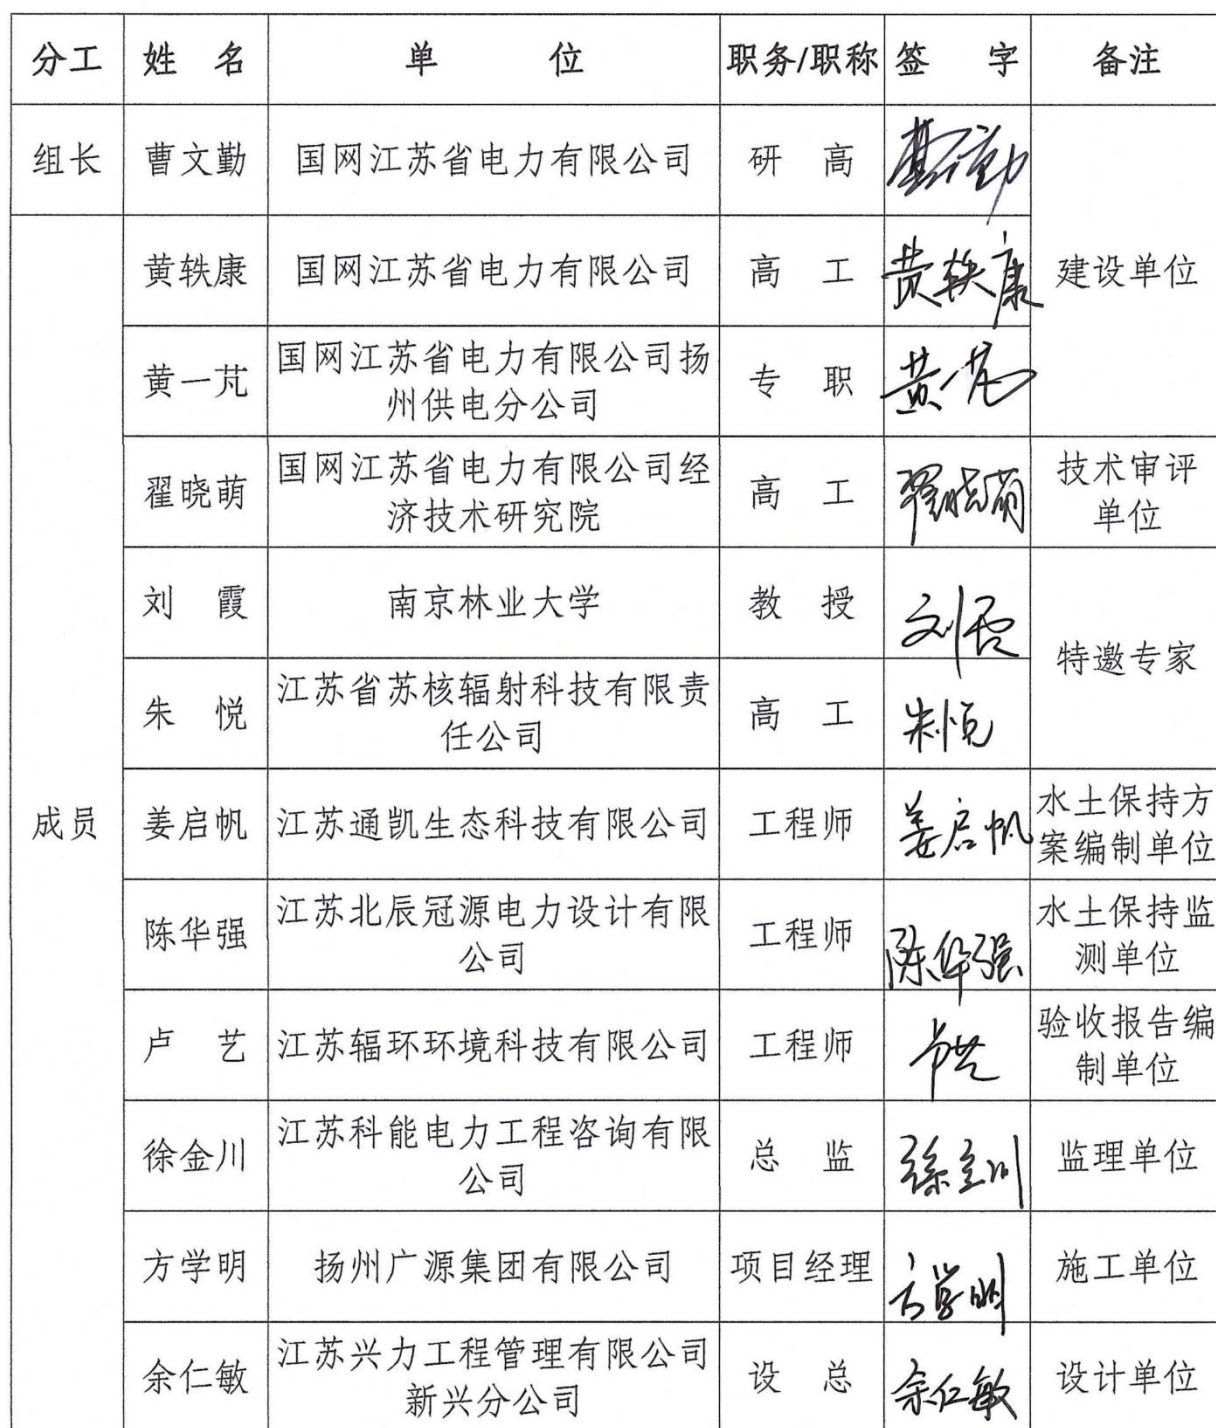 分工 姓 名 单 位 职务/职称 签 字 备注
组长 曹文勤 国网江苏省电力有限公司 研 高 曹文勤
黄轶康 国网江苏省电力有限公司 高 工 黄轶康 建设单位
黄一芃 国网江苏省电力有限公司扬
州供电分公司 专 职 黄一芃
翟晓萌 国网江苏省电力有限公司经
济技术研究院 高 工 翟晓萌 技术审评
单位
刘 霞 南京林业大学 教 授 刘霞 特邀专家
朱 悦 江苏省苏核辐射科技有限责
任公司 高 工 朱悦
成员 姜启帆 江苏通凯生态科技有限公司 工程师 姜启帆 水土保持方
案编制单位
陈华强 江苏北辰冠源电力设计有限
公司 工程师 陈华强 水土保持监
测单位
卢 艺 江苏辐环环境科技有限公司 工程师 卢艺 验收报告编
制单位
徐金川 江苏科能电力工程咨询有限
公司 总 监 徐金川 监理单位
方学明 扬州广源集团有限公司 项目经理 方学明 施工单位
余仁敏 江苏兴力工程管理有限公司
新兴分公司 设 总 余仁敏 设计单位